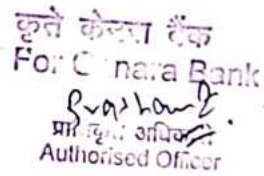 कृते केनरा बैंक
For Canara Bank
प्राधिकृत अधिकारी
Authorised Officer